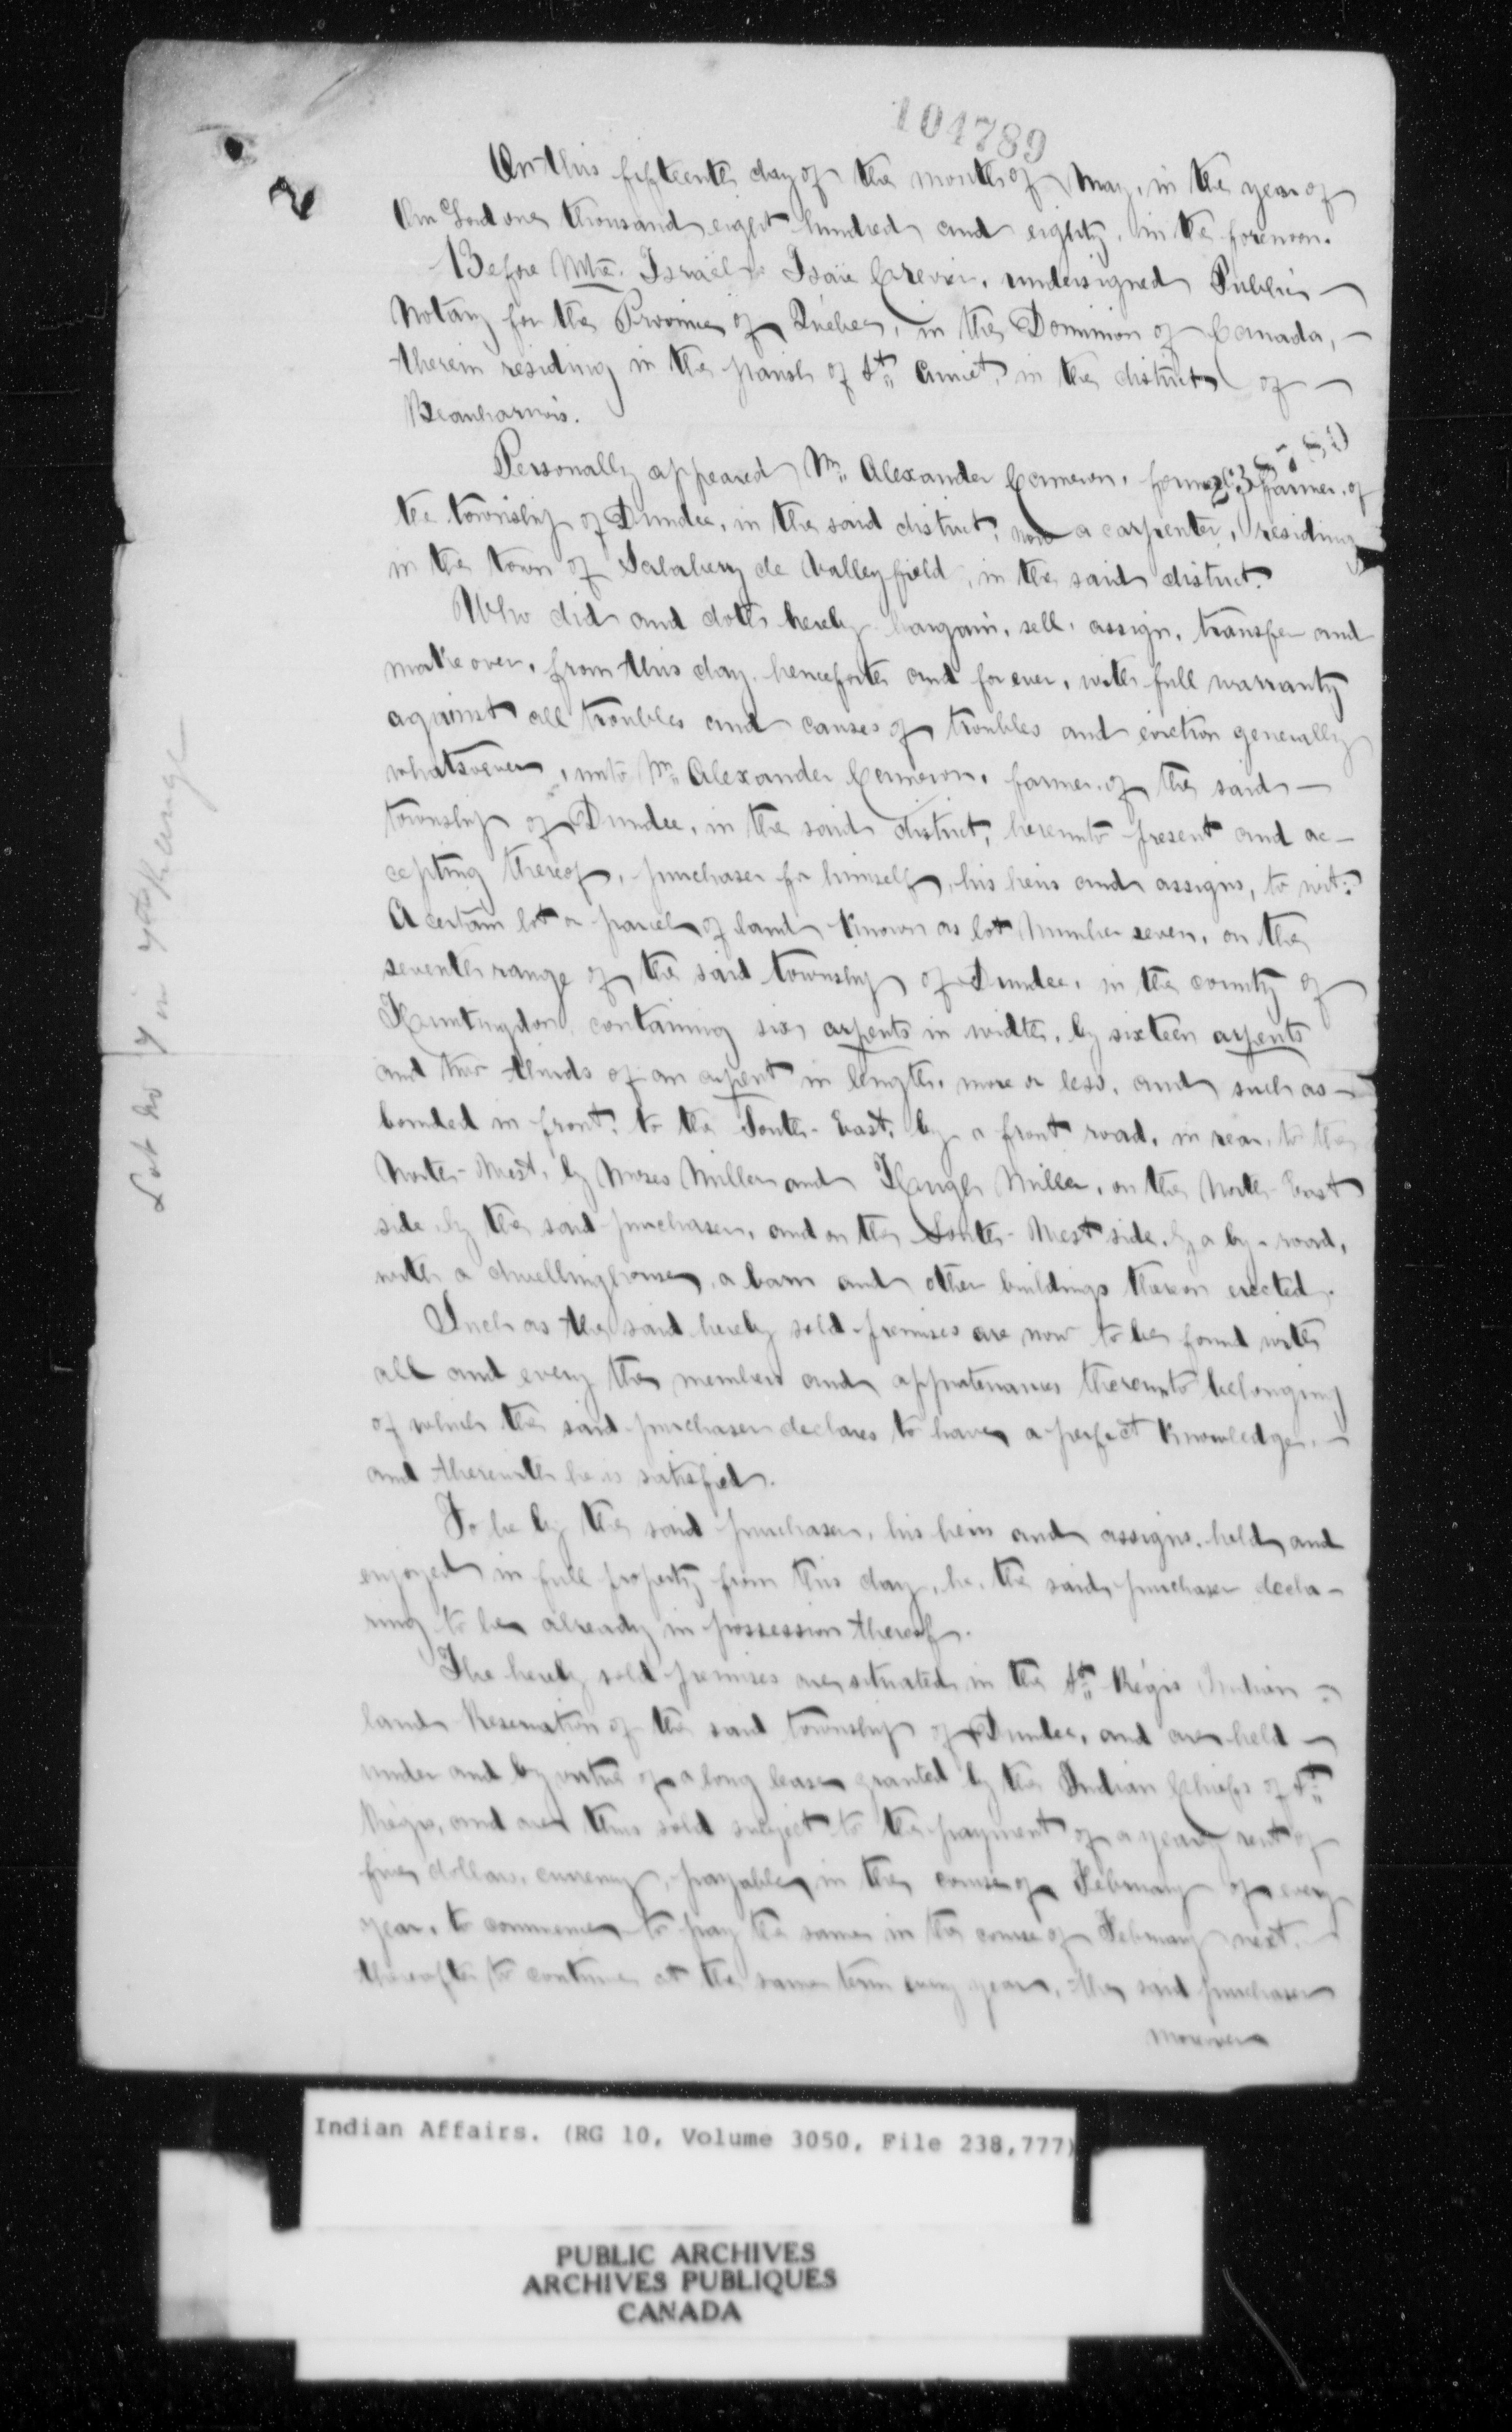 104789
2
On this fifteenth day of the month of May, in the year of
Our Lord one thousand eight hundred and eighty, in the forenoon.
Before Mtre. Israël Isaïe Crevier, undersigned Public
Notary for the Province of Québec, in the Dominion of Canada,
therein residing in the parish of St. Anicet, in the district of
Beauharnois.
Personally appeared Mr. Alexander Cameron, farmer, of
the township of Dundee, in the said district, now a carpenter, residing
in the town of Salabery de Valleyfield, in the said district.
Who did and doth hereby bargain, sell, assign, transfer and
make over, from this day, henceforth and for ever, with full warranty
against all troubles and causes of troubles and eviction generally
whatsoever, unto Mr. Alexander Cameron, farmer, of the said
township of Dundee, in the said district, hereunto present and ac-
cepting thereof, purchaser for himself, his heirs and assigns, to wit:
A certain lot or parcel of land known as lot number seven, on the
seventh range of the said township of Dundee, in the county of
Huntingdon, containing six arpents in width, by sixteen arpents
and two thirds of an arpent in length, more or less, and such as
bounded in front, to the South-East, by a front road, in rear, to the
North-West, by Moses Miller and Hugh Miller, on the North-East
side by the said purchaser, and on the South-West side, by a by-road,
with a dwellinghouse, a barn and other buildings thereon erected.
Such as the said hereby sold premises are now to be found with
all and every the members and appurtenances thereunto belonging
of which the said purchaser declares to have a perfect knowledge,
and therewith he is satisfied.
To be by the said purchaser, his heirs and assigns, held and
enjoyed in full property from this day, he, the said purchaser decla-
ring to be already in possession thereof.
The hereby sold premises are situated in the St. Régis Indian
land Reservation of the said township of Dundee, and are held
under and by virtue of a long lease granted by the Indian Chiefs of St.
Régis, and are thus sold subject to the payment of a yearly rent of
five dollars, currency, payable in the course of February of every
year, to commence to pay the same in the course of February next,
thereafter to continue at the same term every year, the said purchaser
moreover
Lot No 7 in 7th Range
Indian Affairs. (RG 10, Volume 3050, File 238,777)
PUBLIC ARCHIVES
ARCHIVES PUBLIQUES
CANADA